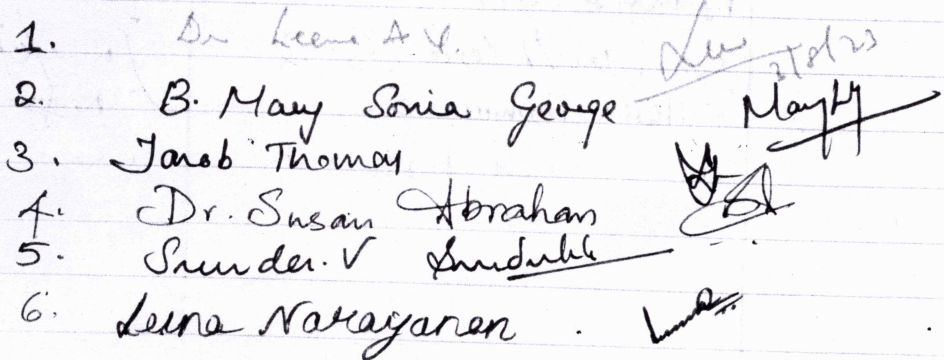 1. Dr Leena A V. 2/8/23
2. B. Mary Sonia George
3. Jacob Thomas
4. Dr. Susan Abraham
5. Sunder. V
6. Leena Narayanan.